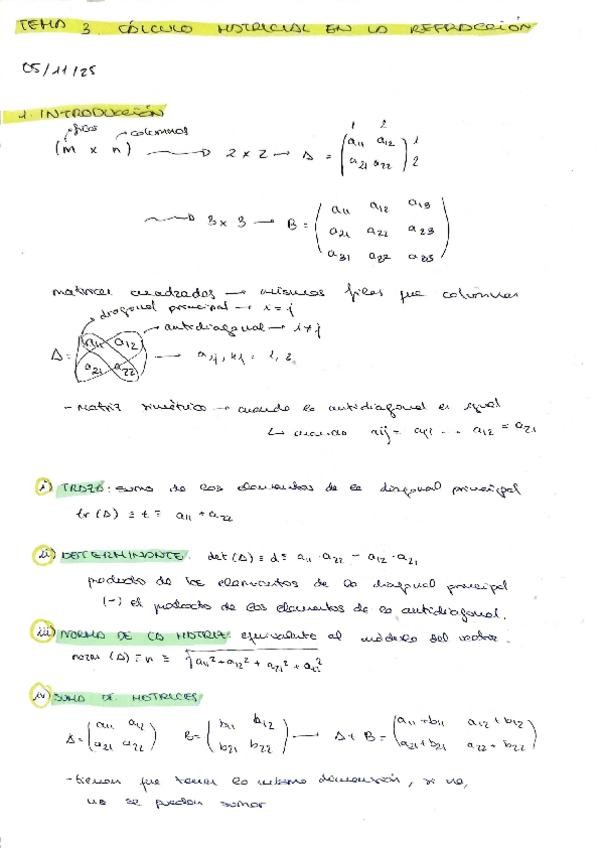 TEMA 3. CÁLCULO MATRICIAL EN LA REFRACCIÓN
05/11/25
1. INTRODUCCIÓN
filas columnas
(m x n) → 2 x 2 → A = (a11 a12 / a21 a22) 1 2
1 2
→ 3 x 3 → B = (a11 a12 a13
a21 a22 a23
a31 a32 a33)
matrices cuadradas → mismas filas que columnas
diagonal principal → i = j
antidiagonal → i ≠ j
A = (a11 a12 / a21 a22) → aij, = 1, 2.
- matriz simétrica → cuando la antidiagonal es igual
↳ cuando aij = aji .. a12 = a21
i) TRAZA: suma de los elementos de la diagonal principal
tr (A) ≡ t = a11 + a22
ii) DETERMINANTE: det (A) ≡ d = a11 · a22 - a12 · a21
producto de los elementos de la diagonal principal
(-) el producto de los elementos de la antidiagonal.
iii) NORMA DE LA MATRIZ: equivalente al módulo del vector.
norm (A) ≡ n ≡ √a11² + a12² + a21² + a22²
iv) SUMA DE MATRICES
A = (a11 a12 / a21 a22) B = (b11 b12 / b21 b22) → A + B = (a11 + b11 a12 + b12 / a21 + b21 a22 + b22)
- tienen que tener la misma dimensión, si no,
no se pueden sumar